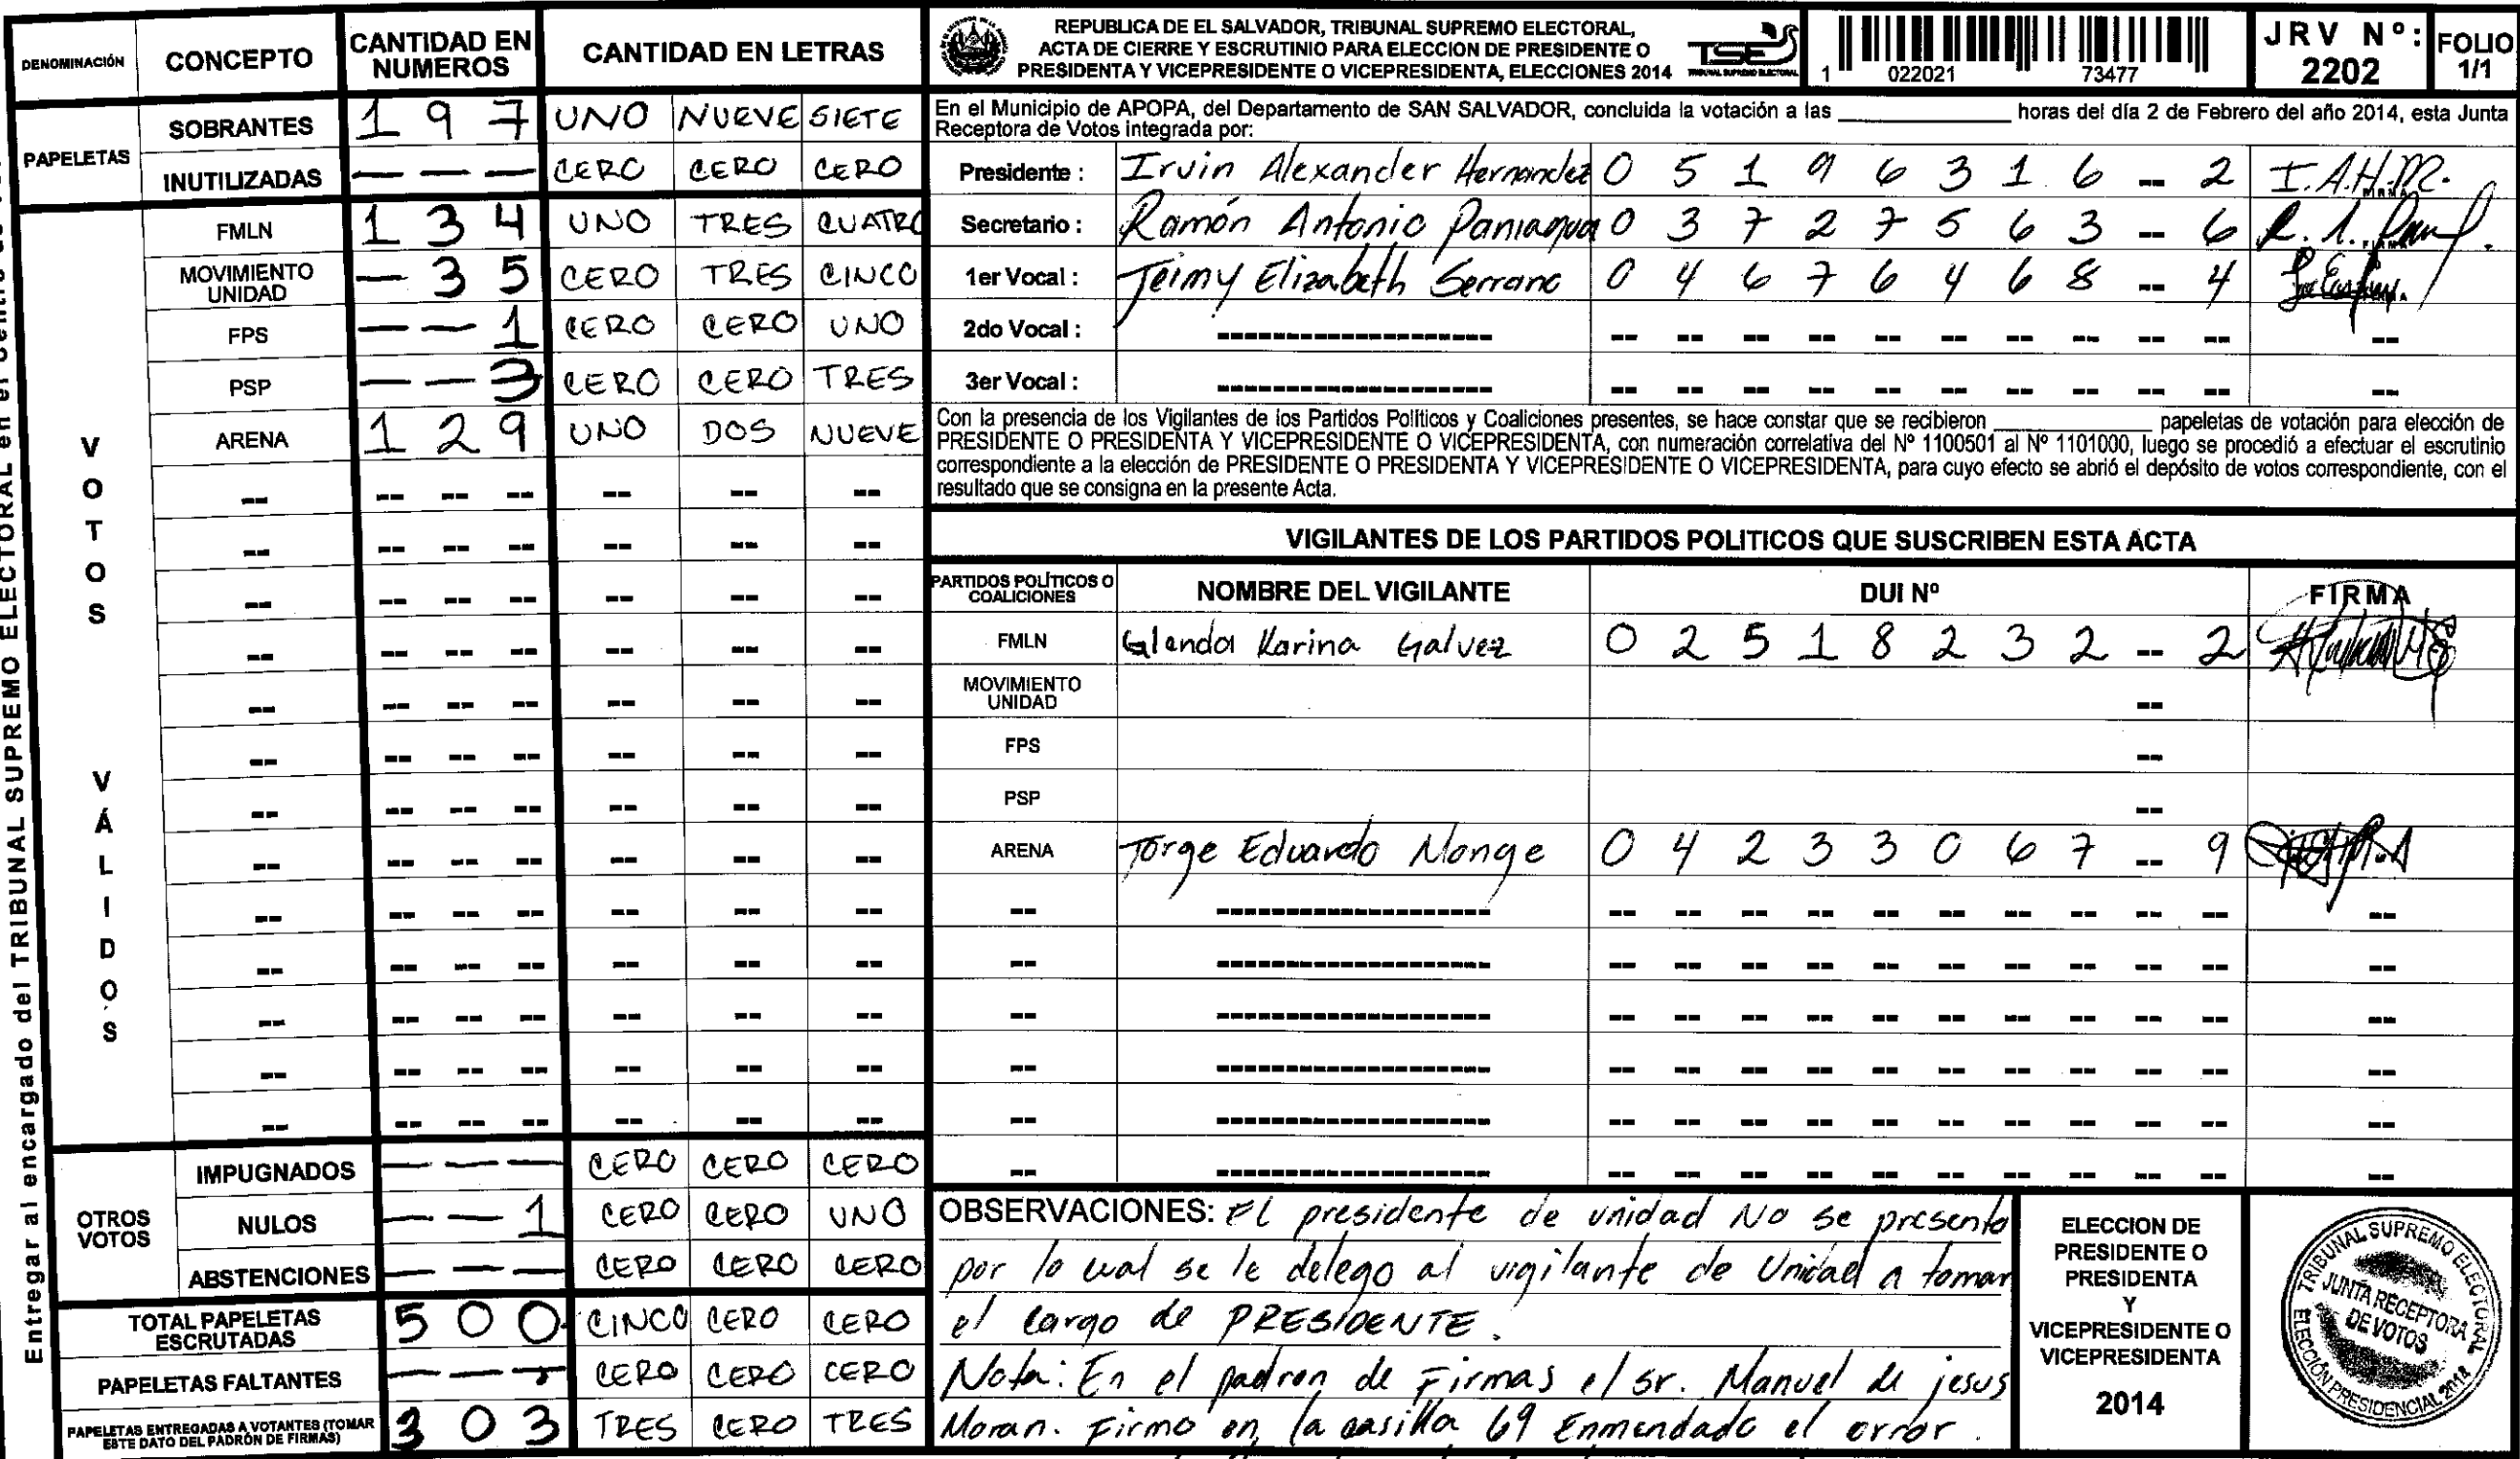 DENOMINACIÓN CONCEPTO CANTIDAD EN NUMEROS CANTIDAD EN LETRAS
PAPELETAS
SOBRANTES 1 9 7 UNO NUEVE SIETE
INUTILIZADAS — — — CERO CERO CERO
VOTOS VÁLIDOS
FMLN 1 3 4 UNO TRES CUATRO
MOVIMIENTO UNIDAD — 3 5 CERO TRES CINCO
FPS — — 1 CERO CERO UNO
PSP — — 3 CERO CERO TRES
ARENA 1 2 9 UNO DOS NUEVE
OTROS VOTOS
IMPUGNADOS — — — CERO CERO CERO
NULOS — — 1 CERO CERO UNO
ABSTENCIONES — — — CERO CERO CERO
TOTAL PAPELETAS ESCRUTADAS 5 0 0 CINCO CERO CERO
PAPELETAS FALTANTES — — — CERO CERO CERO
PAPELETAS ENTREGADAS A VOTANTES (TOMAR ESTE DATO DEL PADRÓN DE FIRMAS) 3 0 3 TRES CERO TRES
Entregar al encargado del TRIBUNAL SUPREMO ELECTORAL en el
REPUBLICA DE EL SALVADOR, TRIBUNAL SUPREMO ELECTORAL,
ACTA DE CIERRE Y ESCRUTINIO PARA ELECCION DE PRESIDENTE O
PRESIDENTA Y VICEPRESIDENTE O VICEPRESIDENTA, ELECCIONES 2014
TSE
TRIBUNAL SUPREMO ELECTORAL
1 022021 73477
JRV Nº: 2202
FOLIO 1/1
En el Municipio de APOPA, del Departamento de SAN SALVADOR, concluida la votación a las ____ horas del día 2 de Febrero del año 2014, esta Junta
Receptora de Votos integrada por:
Presidente : Irvin Alexander Hernandez 0 5 1 9 6 3 1 6 -- 2 I.A.H.M.
Secretario : Ramón Antonio Paniagua 0 3 7 2 7 5 6 3 -- 6
1er Vocal : Jeimy Elizabeth Serrano 0 4 6 7 6 4 6 8 -- 4
2do Vocal :
3er Vocal :
Con la presencia de los Vigilantes de los Partidos Políticos y Coaliciones presentes, se hace constar que se recibieron ____ papeletas de votación para elección de
PRESIDENTE O PRESIDENTA Y VICEPRESIDENTE O VICEPRESIDENTA, con numeración correlativa del Nº 1100501 al Nº 1101000, luego se procedió a efectuar el escrutinio
correspondiente a la elección de PRESIDENTE O PRESIDENTA Y VICEPRESIDENTE O VICEPRESIDENTA, para cuyo efecto se abrió el depósito de votos correspondiente, con el
resultado que se consigna en la presente Acta.
VIGILANTES DE LOS PARTIDOS POLITICOS QUE SUSCRIBEN ESTA ACTA
PARTIDOS POLÍTICOS O COALICIONES NOMBRE DEL VIGILANTE DUI Nº FIRMA
FMLN Glenda Karina Galvez 0 2 5 1 8 2 3 2 -- 2
MOVIMIENTO UNIDAD --
FPS --
PSP --
ARENA Jorge Eduardo Monge 0 4 2 3 3 0 6 7 -- 9
OBSERVACIONES: El presidente de unidad No se presento
por lo cual se le delego al vigilante de Unidad a tomar
el cargo de PRESIDENTE.
Nota: En el padron de Firmas el sr. Manuel de jesus
Moran. Firmo en la casilla 69 Enmendado el error.
ELECCION DE
PRESIDENTE O
PRESIDENTA
Y
VICEPRESIDENTE O
VICEPRESIDENTA
2014
TRIBUNAL SUPREMO ELECTORAL
JUNTA RECEPTORA
DE VOTOS
ELECCIÓN PRESIDENCIAL 2014